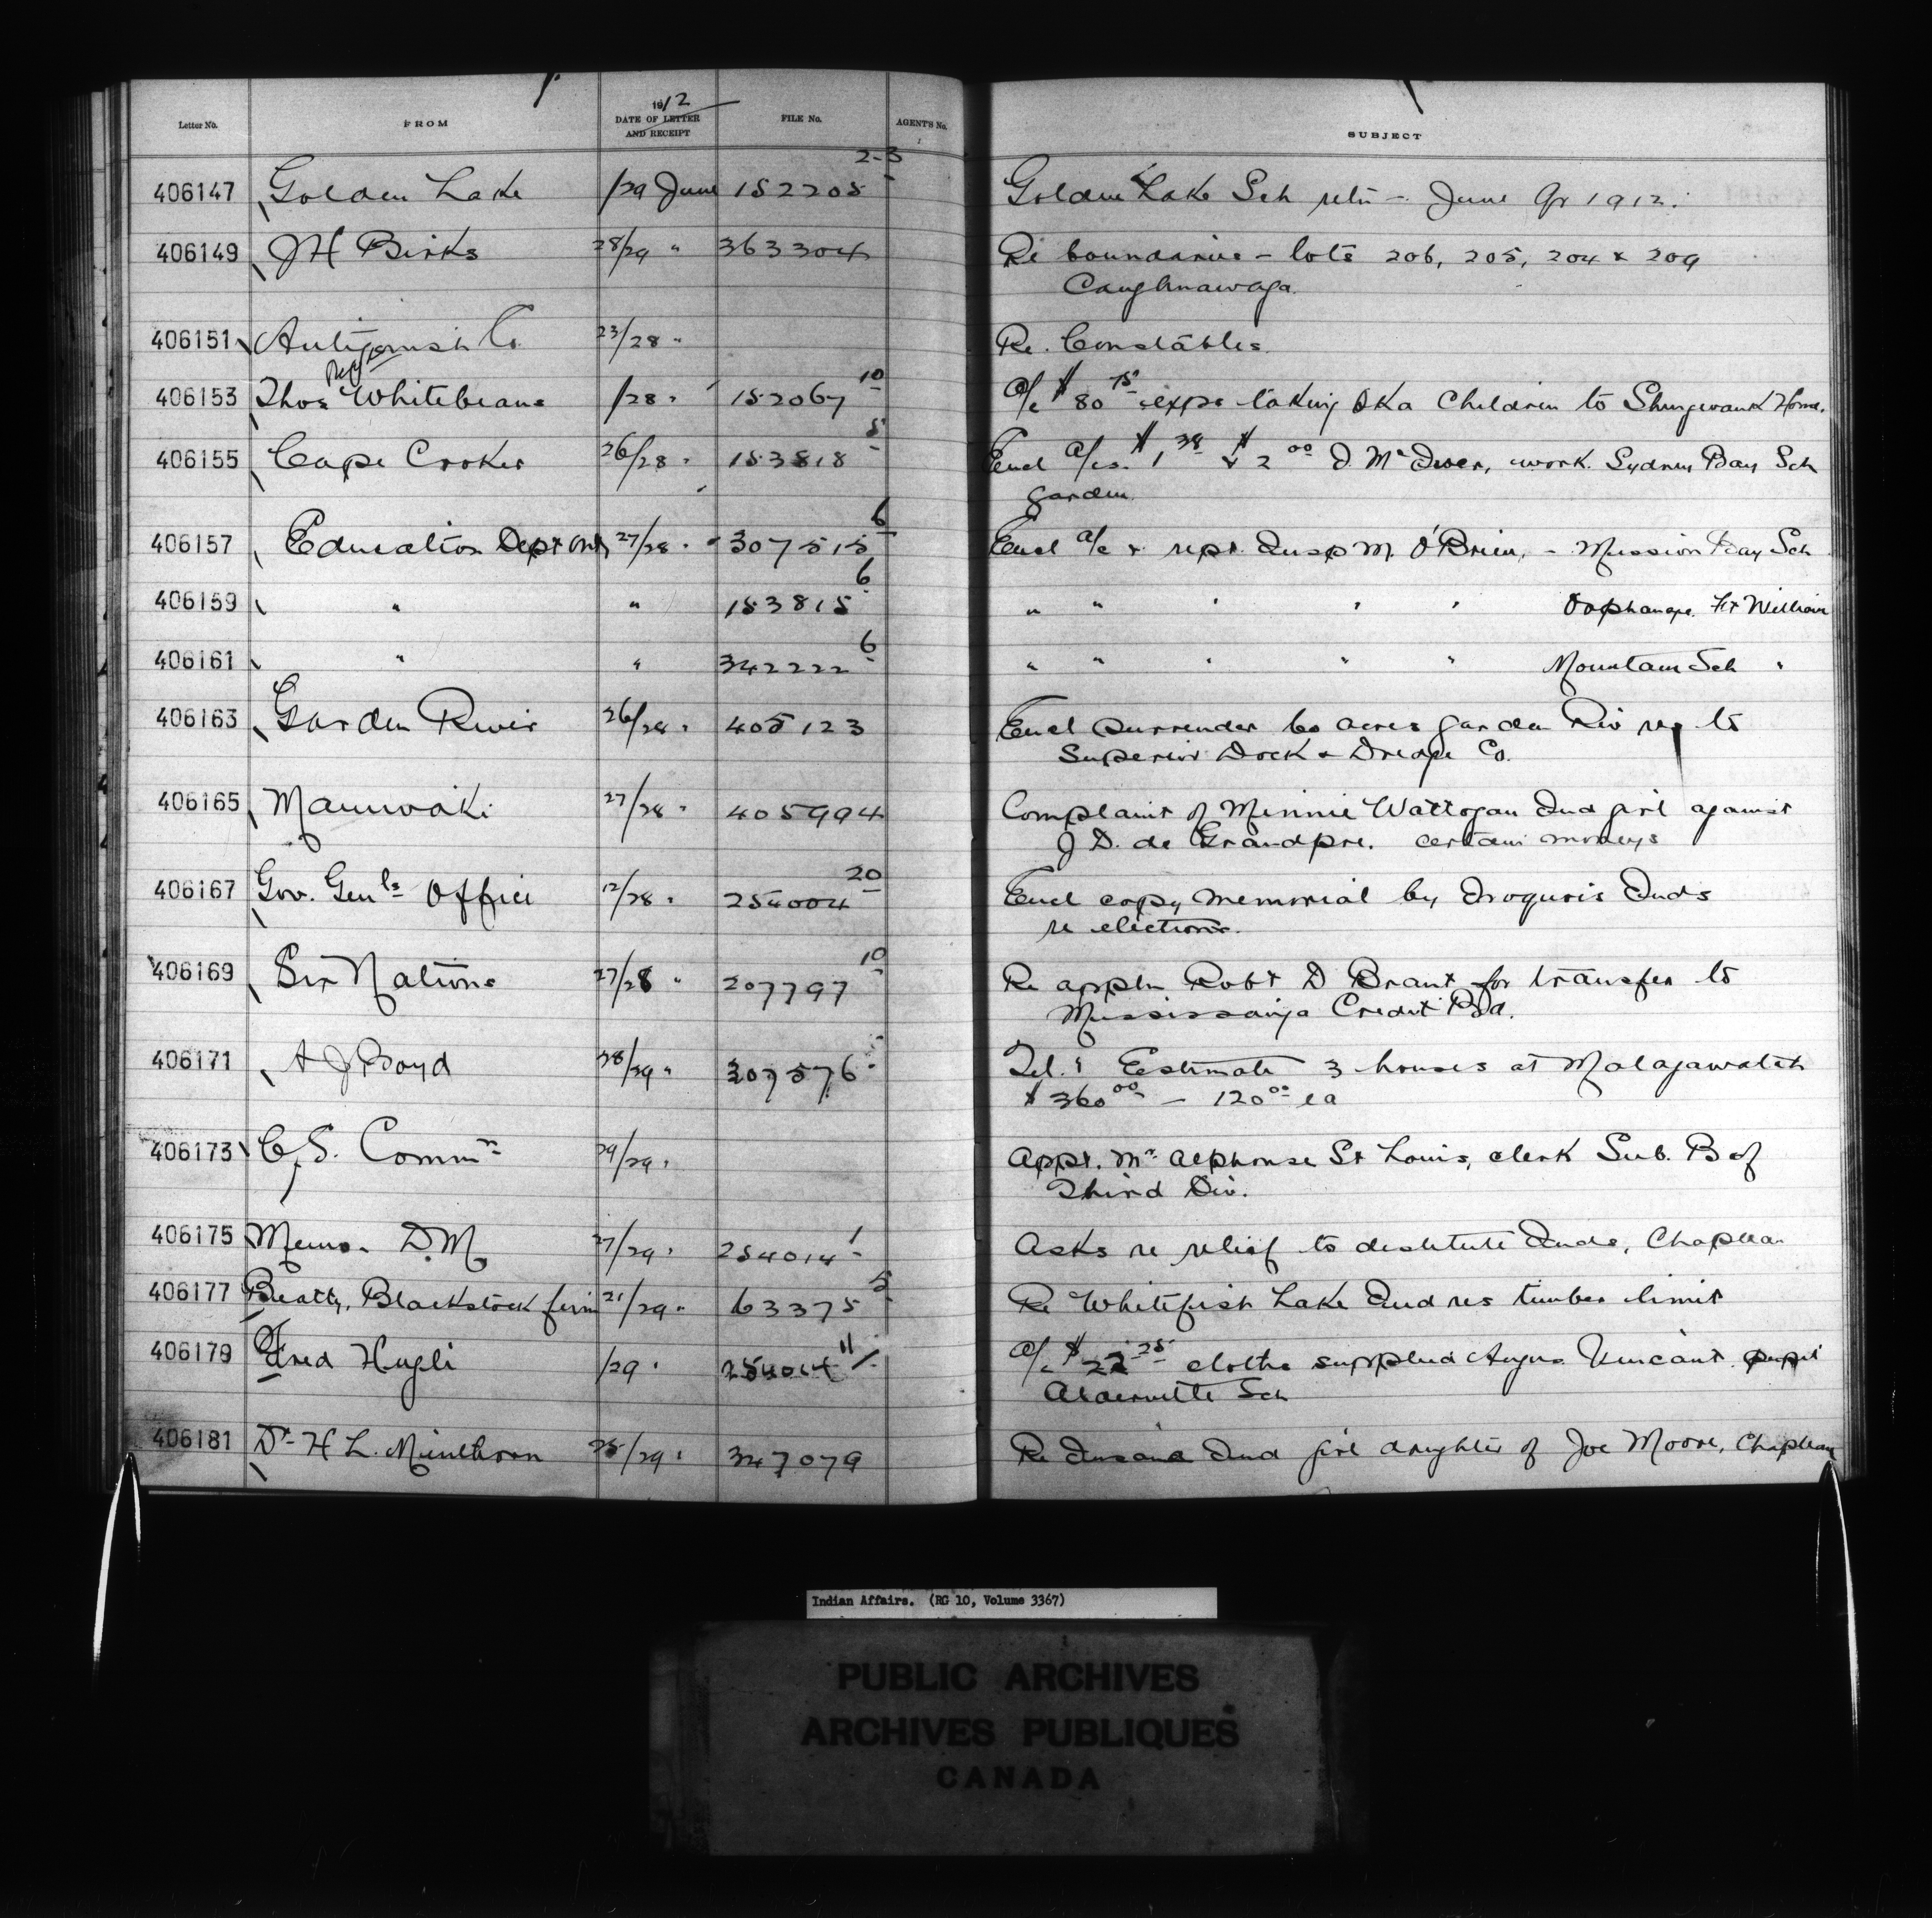 Letter No. FROM 1912 DATE OF LETTER AND RECEIPT FILE No. AGENT'S No. SUBJECT
406147 Golden Lake /29 June 152205 2-3 Golden Lake Sch retn - June Qr 1912.
406149 J H Birks 28/29 " 363304 Re boundaries - lots 206, 205, 204 & 209
Caughnawaga.
406151 Antigonish Co. 23/28 " Re. Constables.
406153 Thos Whitebeans /28 " 152067 10 A/c $80 75 exps taking Oka Children to Shingwauk Home.
406155 Cape Croker 26/28 " 153818 5 Encl A/cs. $1 38 & $2 00 D. McIver, work. Sydney Bay Sch
garden.
406157 Education Dept Ont 27/28 " 307515 6 Encl a/c & rept. Insp M. O'Brien, - Mission Bay Sch
406159 " " 153815 6 " " " " " Orphanage. Ft William
406161 " " 342222 6 " " " " " Mountain Sch "
406163 Garden River 26/28 " 405123 Encl Surrender 60 acres garden Riv res to
Superior Dock & Dredge Co.
406165 Maniwaki 27/28 " 405994 Complaint of Minnie Wattogan Ind girl against
J D. de Grandpre. certain moneys
406167 Gov. Genls Office 12/28 " 254004 20 Encl copy memorial by Iroquois Inds
re elections.
406169 Six Nations 27/28 " 207797 10 Re appln Robt D Brant for transfer to
Mississauga Credit Bd.
406171 A J Boyd 28/29 " 307576 Tel. Estimate 3 houses at Malagawatch
$360 00 - 120 00 ea
406173 C. S. Commn 29/29 " Appt. Mr Alphonse St Louis, clerk Sub. B of
Third Div.
406175 Memo. D.M. 27/29 " 254014 1 Asks re relief to destitute Inds, Chapleau
406177 Beatty, Blackstock firm 21/29 " 63375 5 Re Whitefish Lake Ind res timber limit
406179 Fred Hugli /29 " 254014 11 A/c $22 25 clothe supplied Angus Vincent. pupil
Alderville Sch
406181 Dr H L. Minthorn 25/29 " 347079 Re Insane Ind girl daughter of Joe Moore, Chapleau
Indian Affairs. (RG 10, Volume 3367)
PUBLIC ARCHIVES
ARCHIVES PUBLIQUES
CANADA